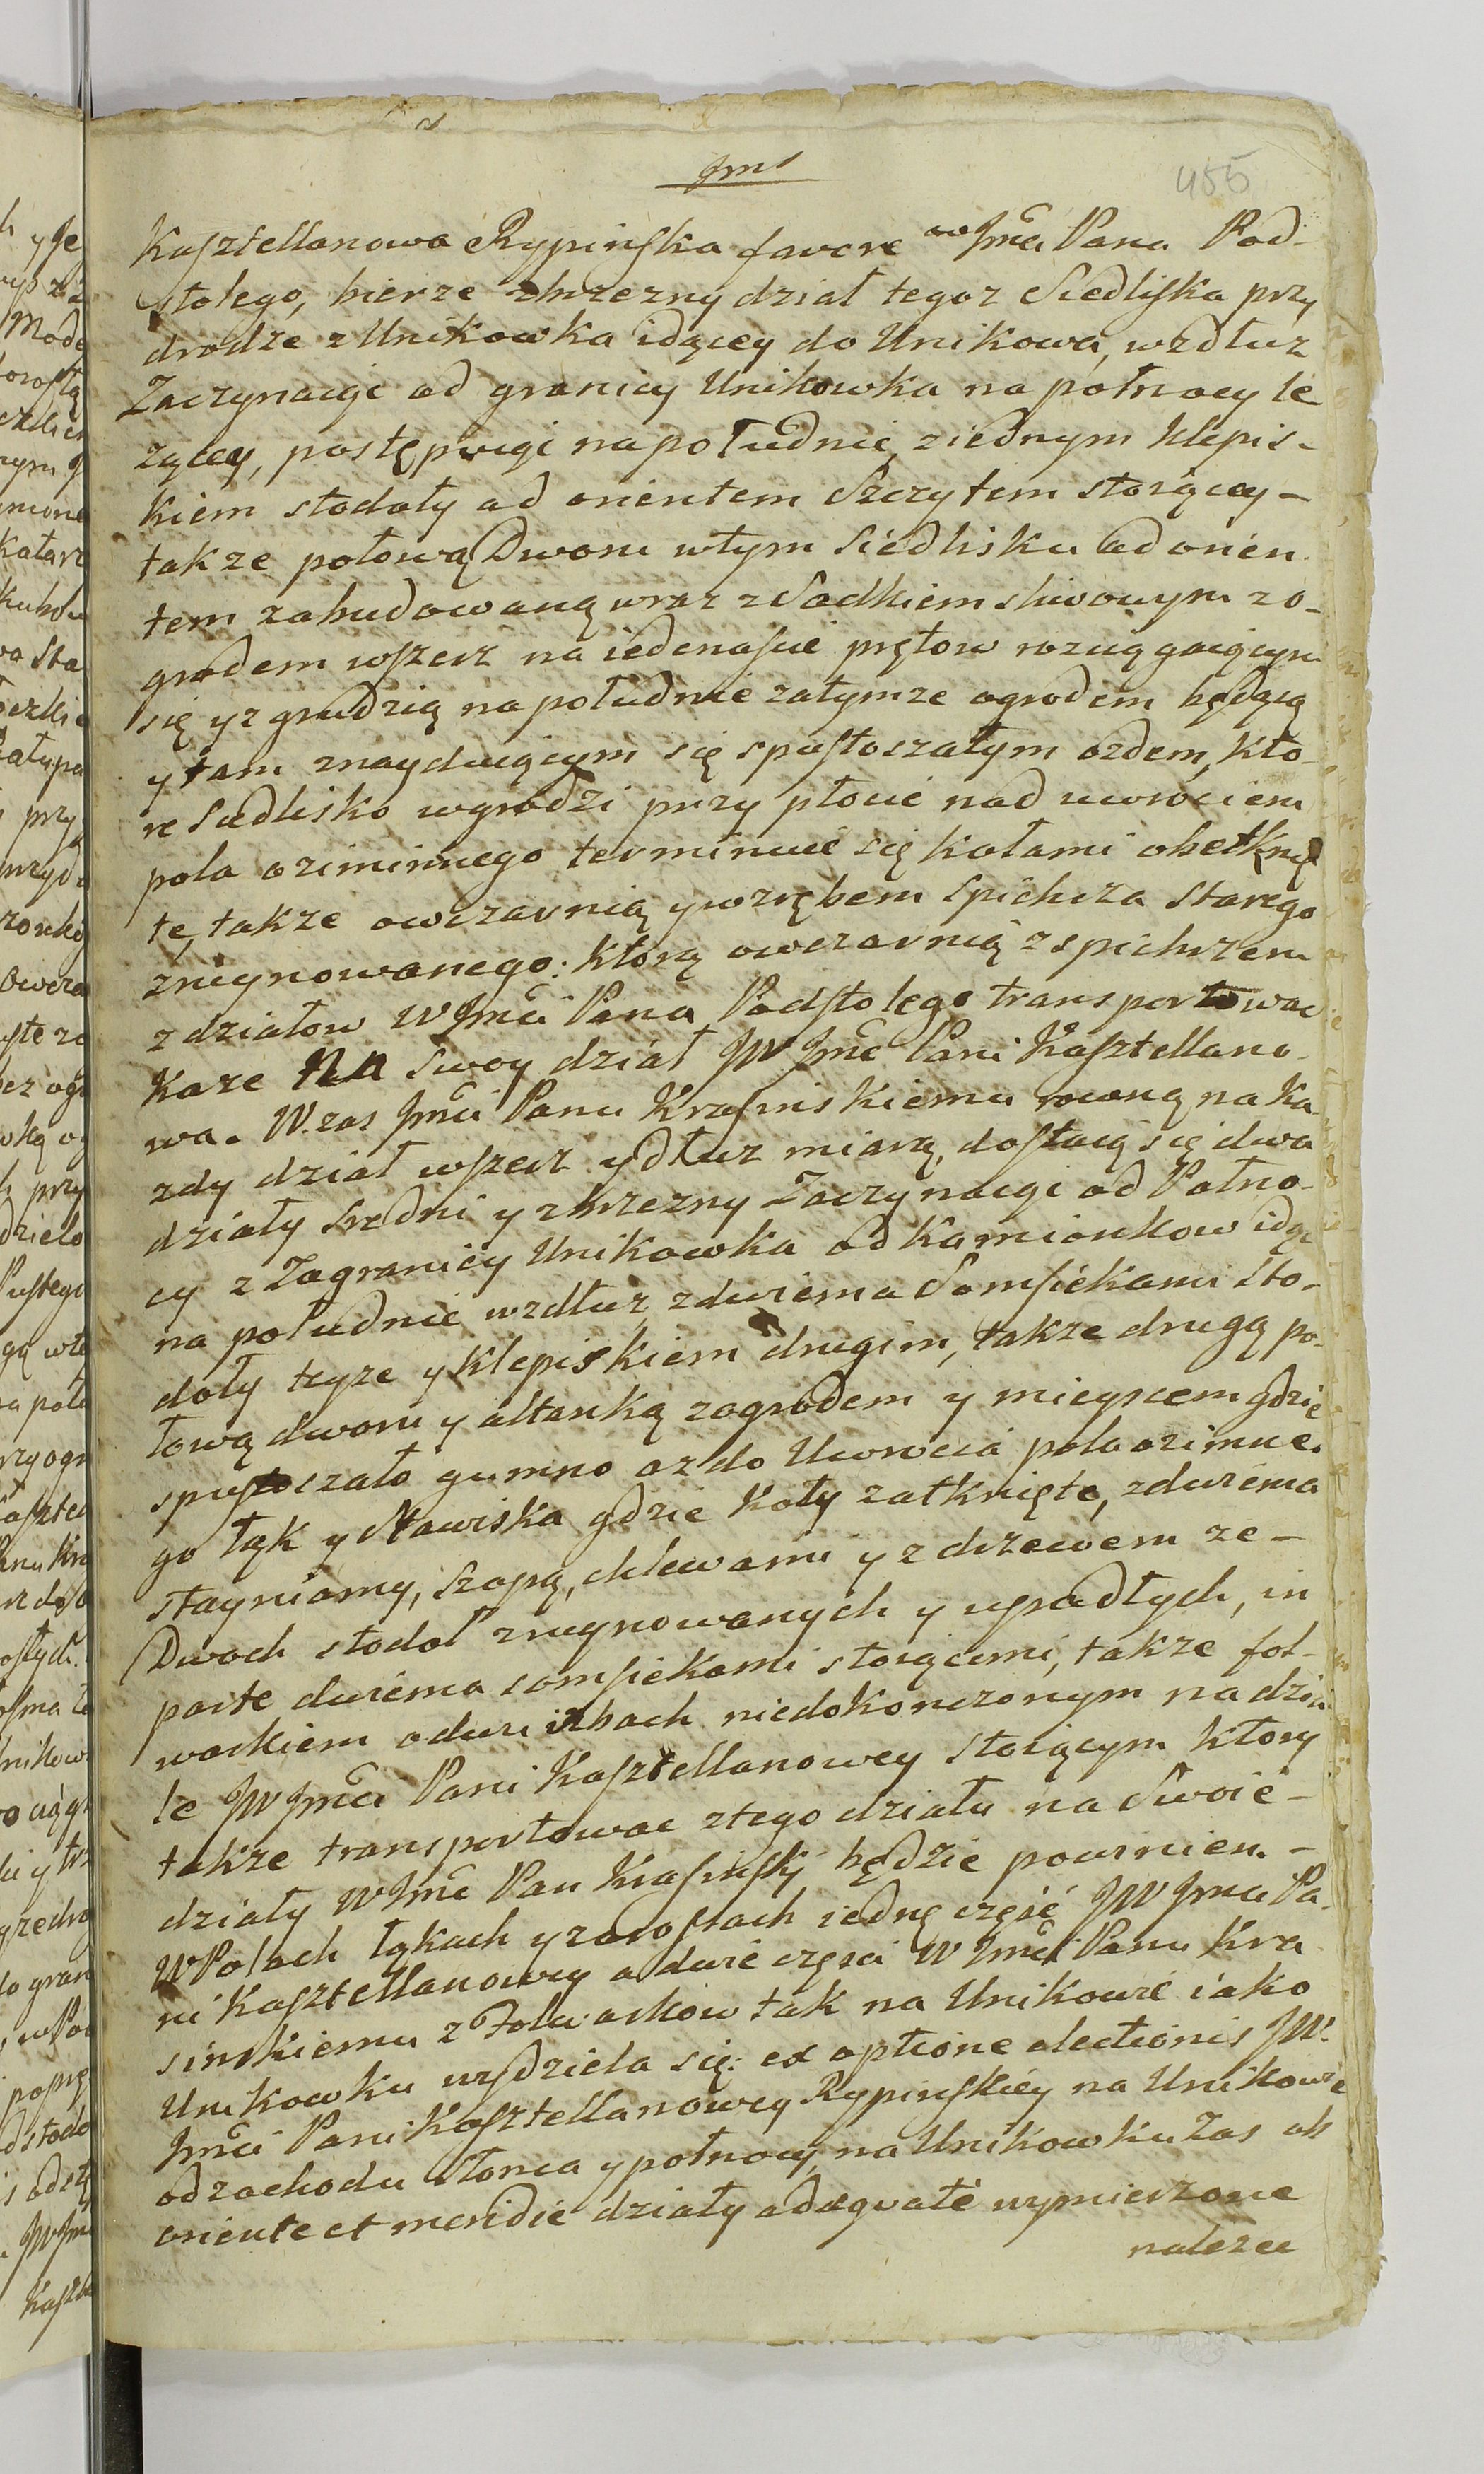 Jms
455
Kasztellanowa Rypińska favore w Jmći Pana Pod-
stolego, bierze zbrzezny dział tegoz Siedliska przy
drodze z Unikowka idącey do Unikowa, wzdłuz
Zaczynaiąc od granicy Unikowka na połnocy le
zącey, postępuiąc na południe, ziednym klepis-
kiem stodoły ad orientem Szczytem stoiącey -
takze połową Dworu wtym Siedlisku ad orien
tem zabudowaną wraz z Sadkiem sliwowym zo-
grodem wszerz na iedenascie prętow rozciągaiącym
się y z grudzią na południe zatymze ogrodem będącą
y tam znayduiącym się spustoszałym ozdem, kto-
re Siedlisko wgrodzi przy płocie nad uwrociem
pola oziminnego terminuie się kołami obetknę
te, takze owczarnią y wzrębem Spichrza Starego
zruynowanego: ktorą owczarnią z spichrzem
z działow WJmći Pana Podstolego transportowac
Kaze na Swoy dział JWJmć Pani Kasztellano
wa. W. zas Jmći Panu Krasinskiemu rowną na Ka
zdy dział wszerz y dłuz miarą, dostaią się dwa
działy Sredni y zbrzezny Zaczynaiąc od Połno-
cy z Zagranicy Unikowka od Kamionkow idąc
na południe wzdłuz, zdwiema Sąmsiekami Sto-
doły teyze y klepiskiem drugim, takze drugą po-
łową dworu y altanką zogrodem y mieyscem gdzie
spustoszało gumno az do Uwrocia pola ozimne
go łąk y Stawiska gdzie Koły zatknięte, zdwiema
stayniamy, szopą, chlewami y z drzewem ze -
Dwoch stodoł zruynowanych y upadłych, in
parte dwiema samsiekami stoiącemi, takze fol-
warkiem o dwu izbach niedokonczonym na dzia
le JWJmći Pani Kasztellanowey stoiącym ktory
takze transportowac ztego działu na Swoie -
działy WJmć Pan Krasinski będzie powinien. -
WPolach łąkach y zaroslach iedną częsć JWJmci Pa
ni Kasztellanowey a dwie częsci WJmći Panu Kra
sinskiemu z Folwarkow tak na Unikowie iako
Unikowku wydziela się: ex optione electionis JW.
Jmći Pani Kasztellanowey Rypinskiey na Unikowie
od zachodu słonca y połnocy, na Unikowku Zas ab
oriente et meridie działy adaequate wymierzone
nalezec